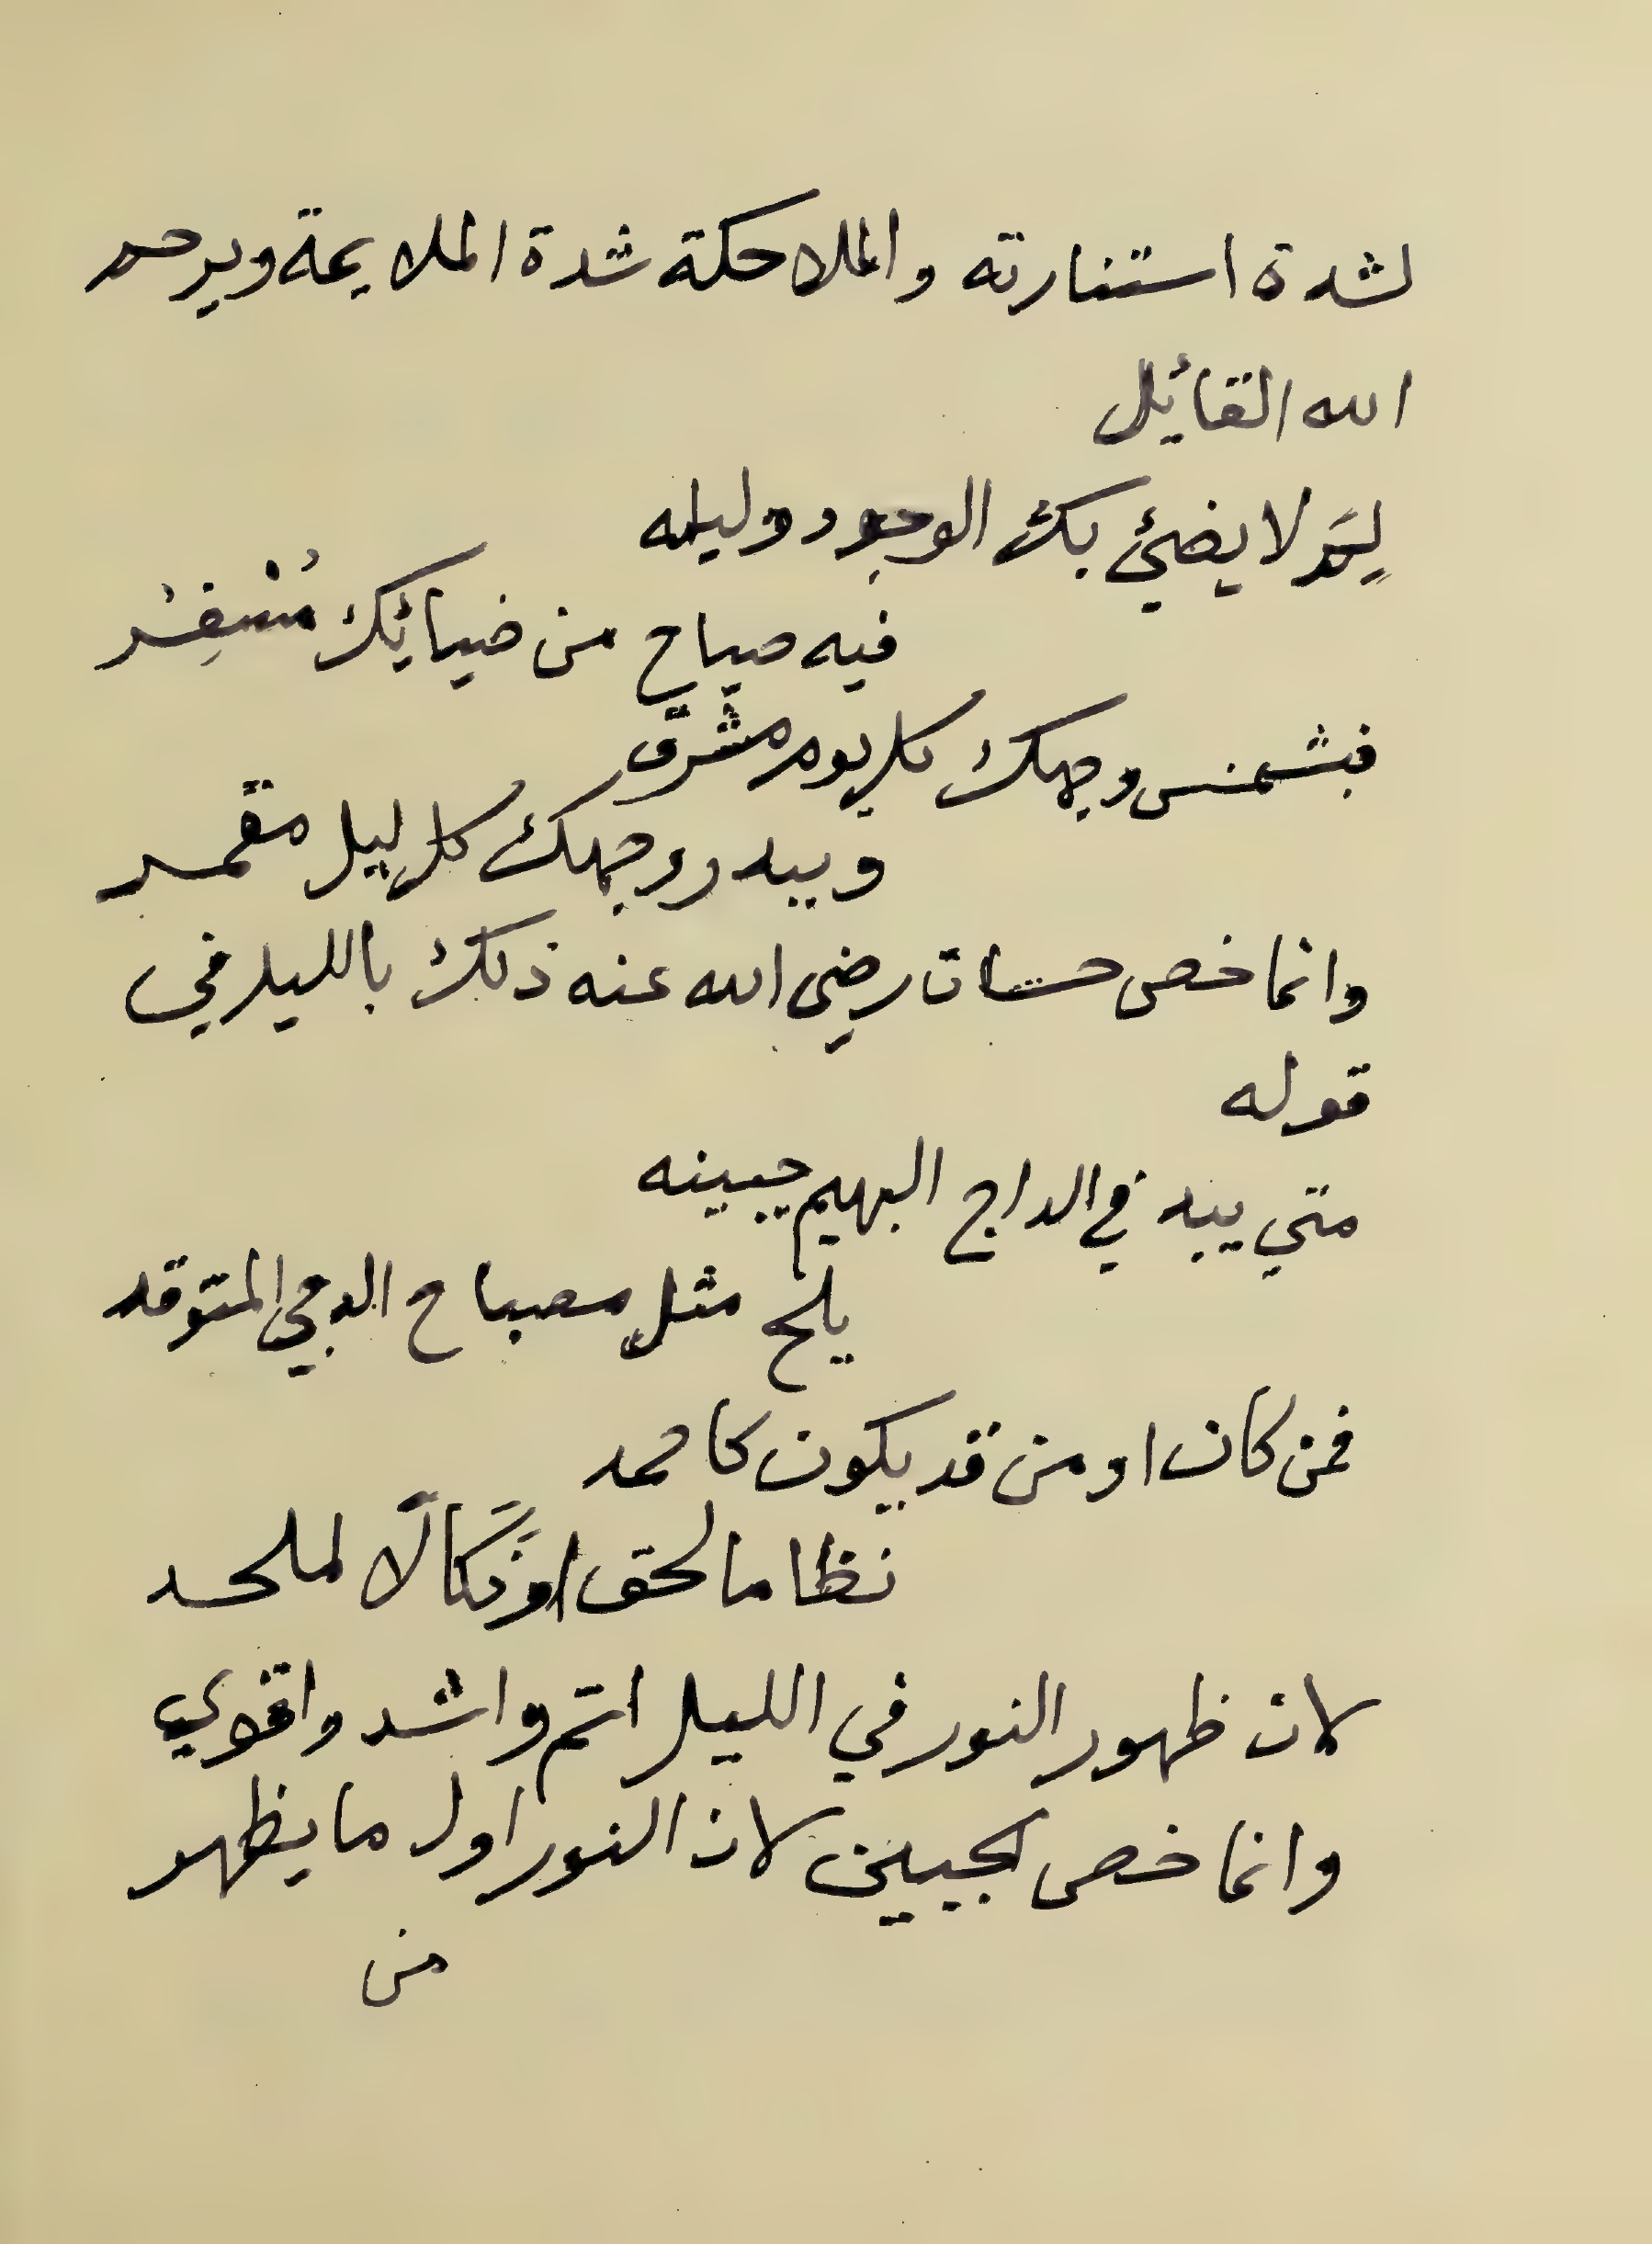 لشدة استنارته والملاحكة شدة الملايمة ويرحم
الله القائل
لِمَ لا يضئ بك الوجود وليله
فيه صباح من ضيائك مُسْفِرُ
فبشمس وجهك كل يوم مشرق
وببدر وجهك كل ليل مقمر
وانما خص حسان رضى الله عنه ذلك بالليل في
قوله
متي يبد في الداج البهيم جبينه
يلح مثل مصباح الدجي المتوقد
فمن كان او من قد يكون كاحمد
نظاما لحق او نَكَالًا لملحد
لان ظهور النور في الليل اتم واشد واقوي
وانما خص الجبين لان النور اول ما يظهر
من